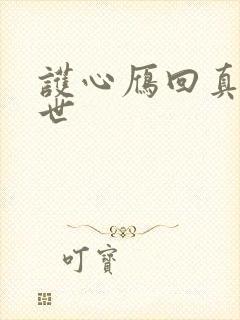 護心鴈回真
世
叮寶